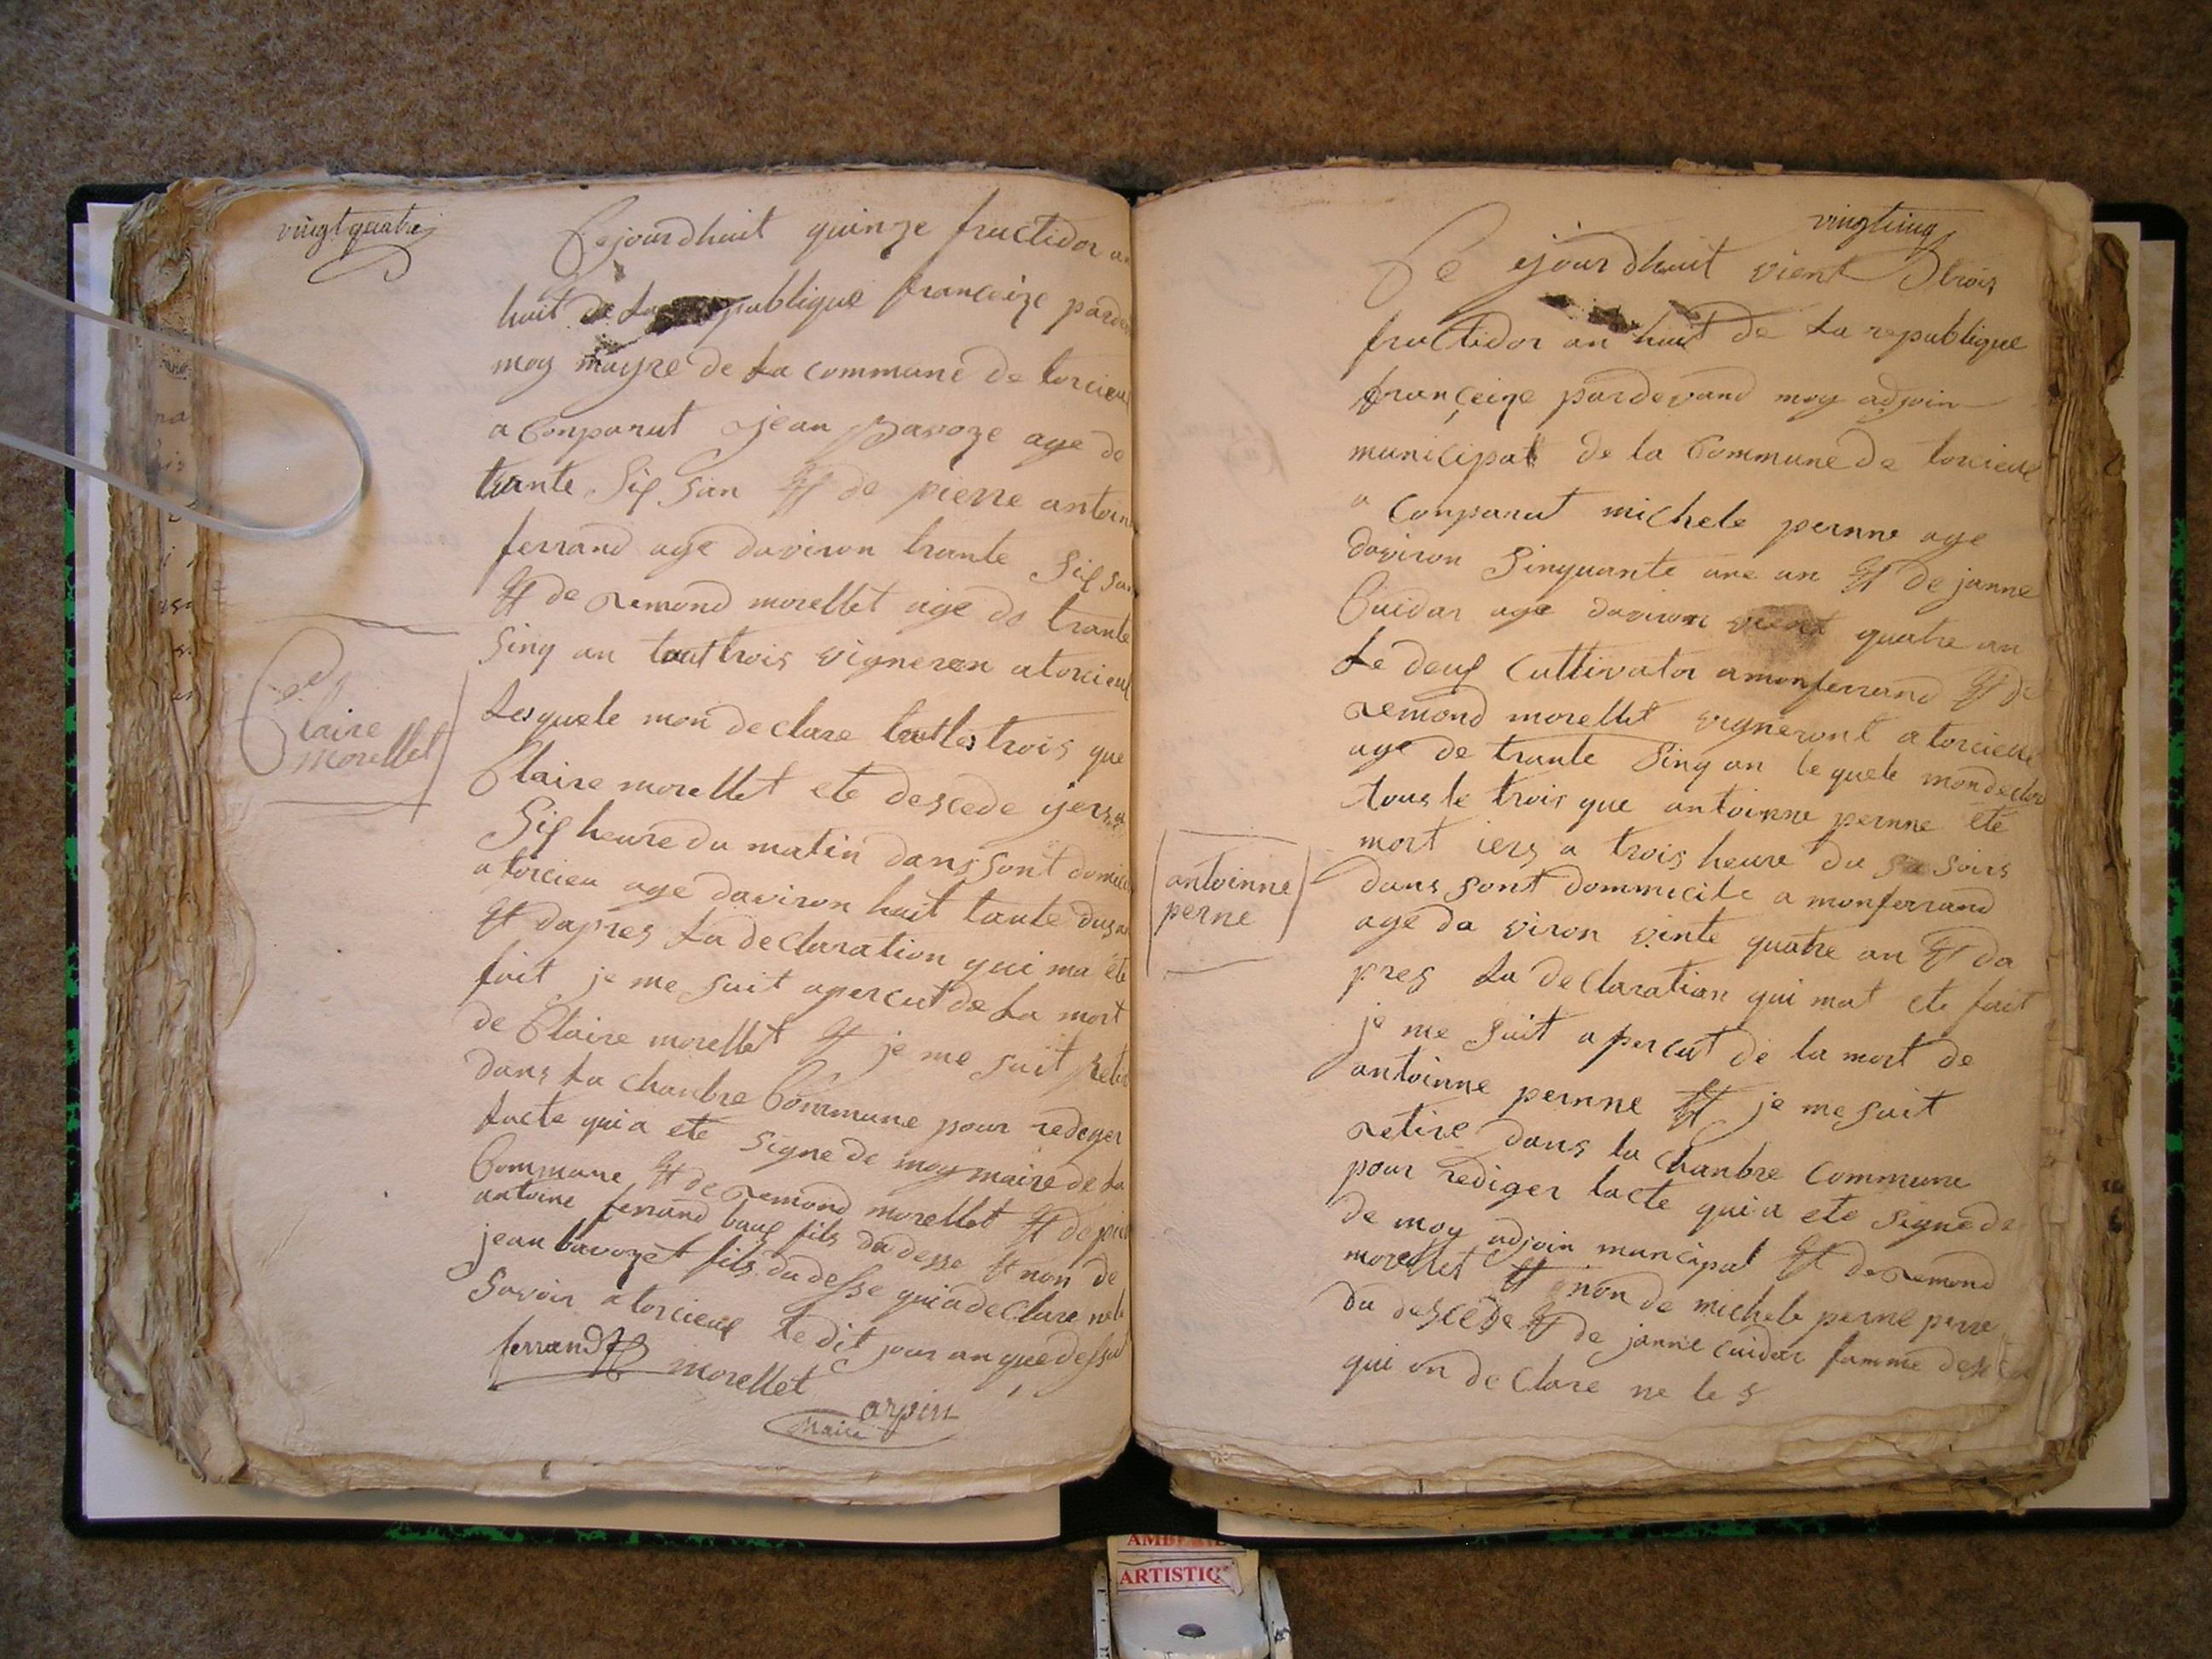 vingt quatre
Cejourdhuit quinze fructidor an
huit de La publique françeize parde
moy mayre de La commune de torcieu
a Conparut jean Bavoze age de
trante Six San Et de pierre antoin
ferrand age daviron trante Six San
Et de remond morellet age de trante
Sinq an tout trois vigneron a torcieux
Lesquele mon declare tout les trois que
Claire morellet ete descede yers a
Six heure du matin dans sont domici
a torcieu age daviron huit tante dus a
Et dapres La declaration qui ma ete
fait je me suit apercut de La mort
de Claire morellet Et je me suit Retir
dans La chanbre Commune pour redeger
Lacte qui a ete Signe de moy maire de La
Commune Et de remond morellet Et de pier
antoine ferrand baux fils du desse Et non de
jean bavozet fils du desse qui a declare ne le
Savoir a torcieux Le dit jour an que dessu
ferrand morellet
arpin
Maire
Claire
morellet
vingtcinq
Ce ejourdhuit vient trois
fructidor an huit de La republique
françeize pardevand moy adjoin
municipal de la Commune de torcieux
a Conparut michele pernne age
daviron Sinquante une an Et de janne
Cuidar age daviron vient quatre an
Le deux Cultivator a monferrand Et de
remond morellet vigneront a torcieux
age de trante Sinq an le quele mon declar
tous le trois que antoinne pernne ete
mort iers a trois heure du soirs
dans sont dommicile a monferrand
age da viron vinte quatre an Et da
pres La declaration qui mat ete fait
je me suit apercut de la mort de
antoinne pernne Et je me suit
retire dans la chanbre commune
pour rediger lacte qui a ete signe de
de moy adjoin muncipal Et de remond
morellet Et non de michele perne perre
du descede Et de janne cuidar famme
qui on declare ne le s
antoinne
perne
ARTISTIQ